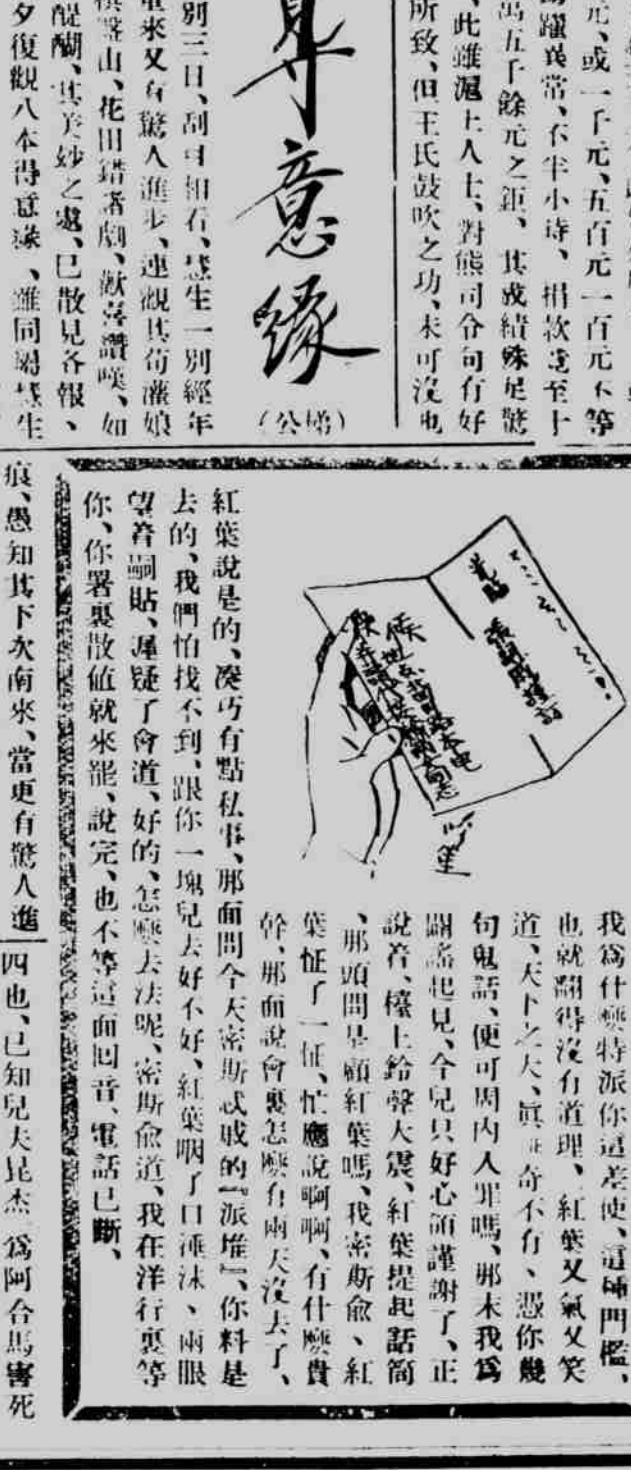 元、或一千元、五百元一百元不等
踴躍異常、不半小時、捐款竟至十
萬五千餘元之鉅、其成績殊足驚
、此雖滬上人士、對熊司令向有好
所致、但王氏鼓吹之功、未可沒也
意緣
（公悌）
別三日、刮目相看、慧生一別經年
重來又有驚人進步、連觀其荀灌娘
山、花田錯諸劇、歡喜讚嘆、如
醍醐、其美妙之處、已散見各報、
夕復觀八本得意緣、雖同屬慧生
我爲什麽特派你這差使、這種門檻、
也就翻得沒有道理、紅葉又氣又笑
道、天下之大、眞正奇不有、憑你幾
句鬼話、便可周內人罪嗎、那末我爲
闢謠起見、今兒只好心領謹謝了、正
說着、檯上鈴聲大震、紅葉提起話筒
、那頭問是顧紅葉嗎、我密斯俞、紅
葉怔了一怔、忙應說啊啊、有什麽貴
幹、那面說會裏怎麽有兩天沒去了、
紅葉說是的、湊巧有點私事、那面問今天密斯忒戚的『派堆』、你料是
去的、我們怕找不到、跟你一塊兒去好不好、紅葉咽了口唾沫、兩眼
望着嗣貼、遲疑了會道、好的、怎麽去法呢、密斯俞道、我在洋行裏等
你、你署裏散値就來罷、說完、也不等這面回音、電話已斷、
痕、愚知其下次南來、當更有驚人進
四也、已知兒夫昆杰、爲阿合馬害死